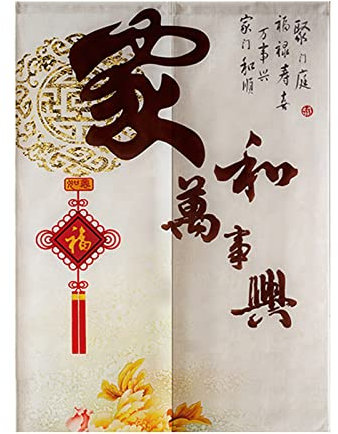 家和萬事興
家门和顺
万事兴
福禄寿喜
聚门庭
福